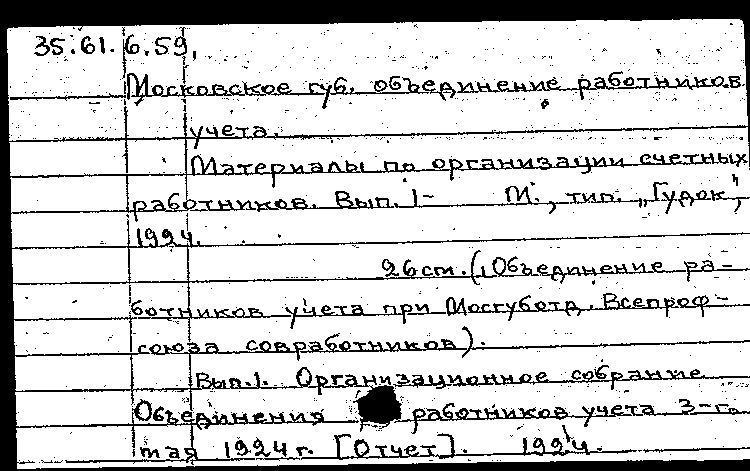 35.61.6.59,
Московское губ. объединение работников
учета.
Материалы по организации счетных
работников. Вып. 1- М., тип. „Гудок",
1924.
26 cm. (Объединение ра-
ботников учета при Мосгуботд. Всепроф-
союза совработников).
Вып.1. Организационное собрание
Объединения работников учета 3-го
мая 1924 г. [Отчет]. 1924.